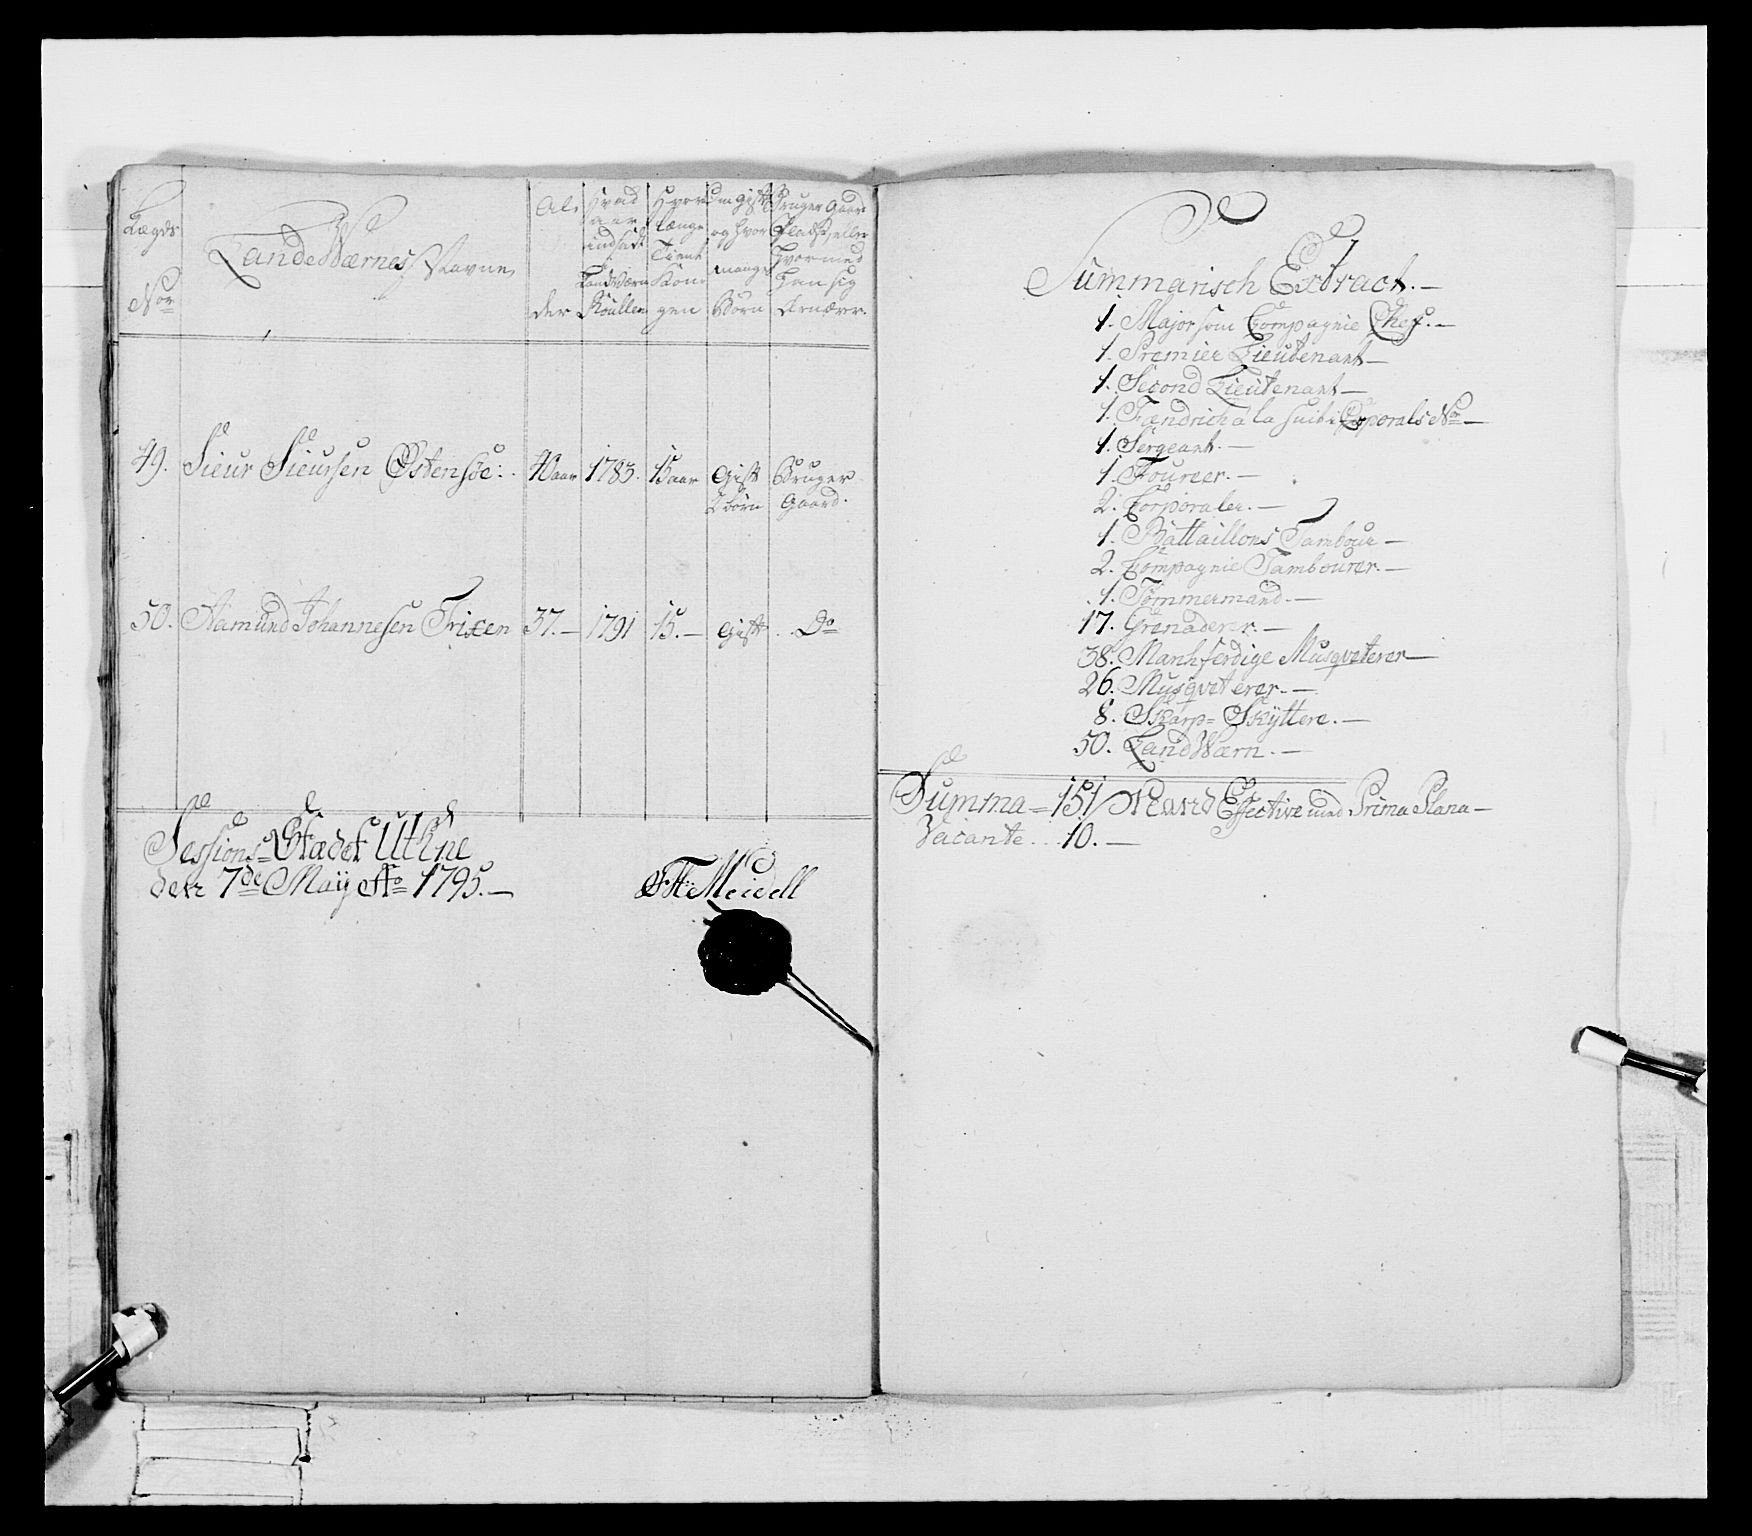 Lægds
No.
LandeWærnes Navne
Al,
der
Hvad
aar
indsadt
LandWærn
Roullen
Hvor
længe
Tient
Kon,
gen
Om gift
og hvor
mange
Børn
Bruger Gaard
Plads, eller
hvormed
Han sig
Ernærer.
49. Sieur Sieursen Østensøe: 40 aar 1783. 15 aar Gift Bruger
2 børn Gaard.
50. Aamund Johannesen Trixen 37.— 1791 15.— Gift Do
Sessions-Stædet Uthne
den 7de Maij Ao 1795.—
Meidell
Summarisch Extract.—
1. Major som Compagnie Chef.—
1. Premier Lieutenant—
1. Second Lieutenant—
1. Fændrich a la suite Corporals No—
1. Sergeant.—
1. Foureer.—
2. Corporaler.—
1. Battaillons Tambour—
2. Compagnie Tambourer.—
1. Tømmermand.—
17. Grenaderer.—
38. Manhferdige Musqveterer—
26. Musqveterer.—
8. Skarp= Skÿttere.—
50. LandWærn.—
Summa = 151 Mand Effective med Prima Plana—
Vacante . . . 10.—